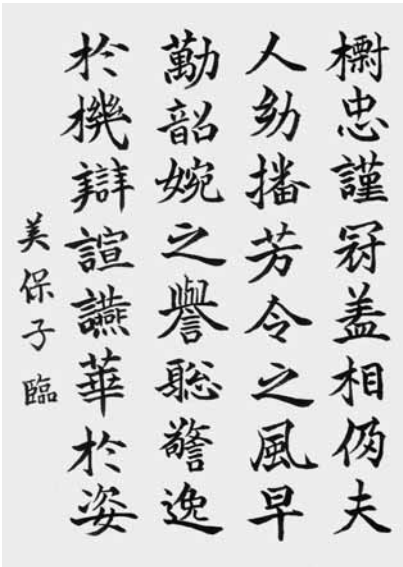 樹忠謹冠盖相仍夫
人幼播芳令之風早
勱韶婉之譽聡警逸
於機辯諠讌華於姿
美保子臨